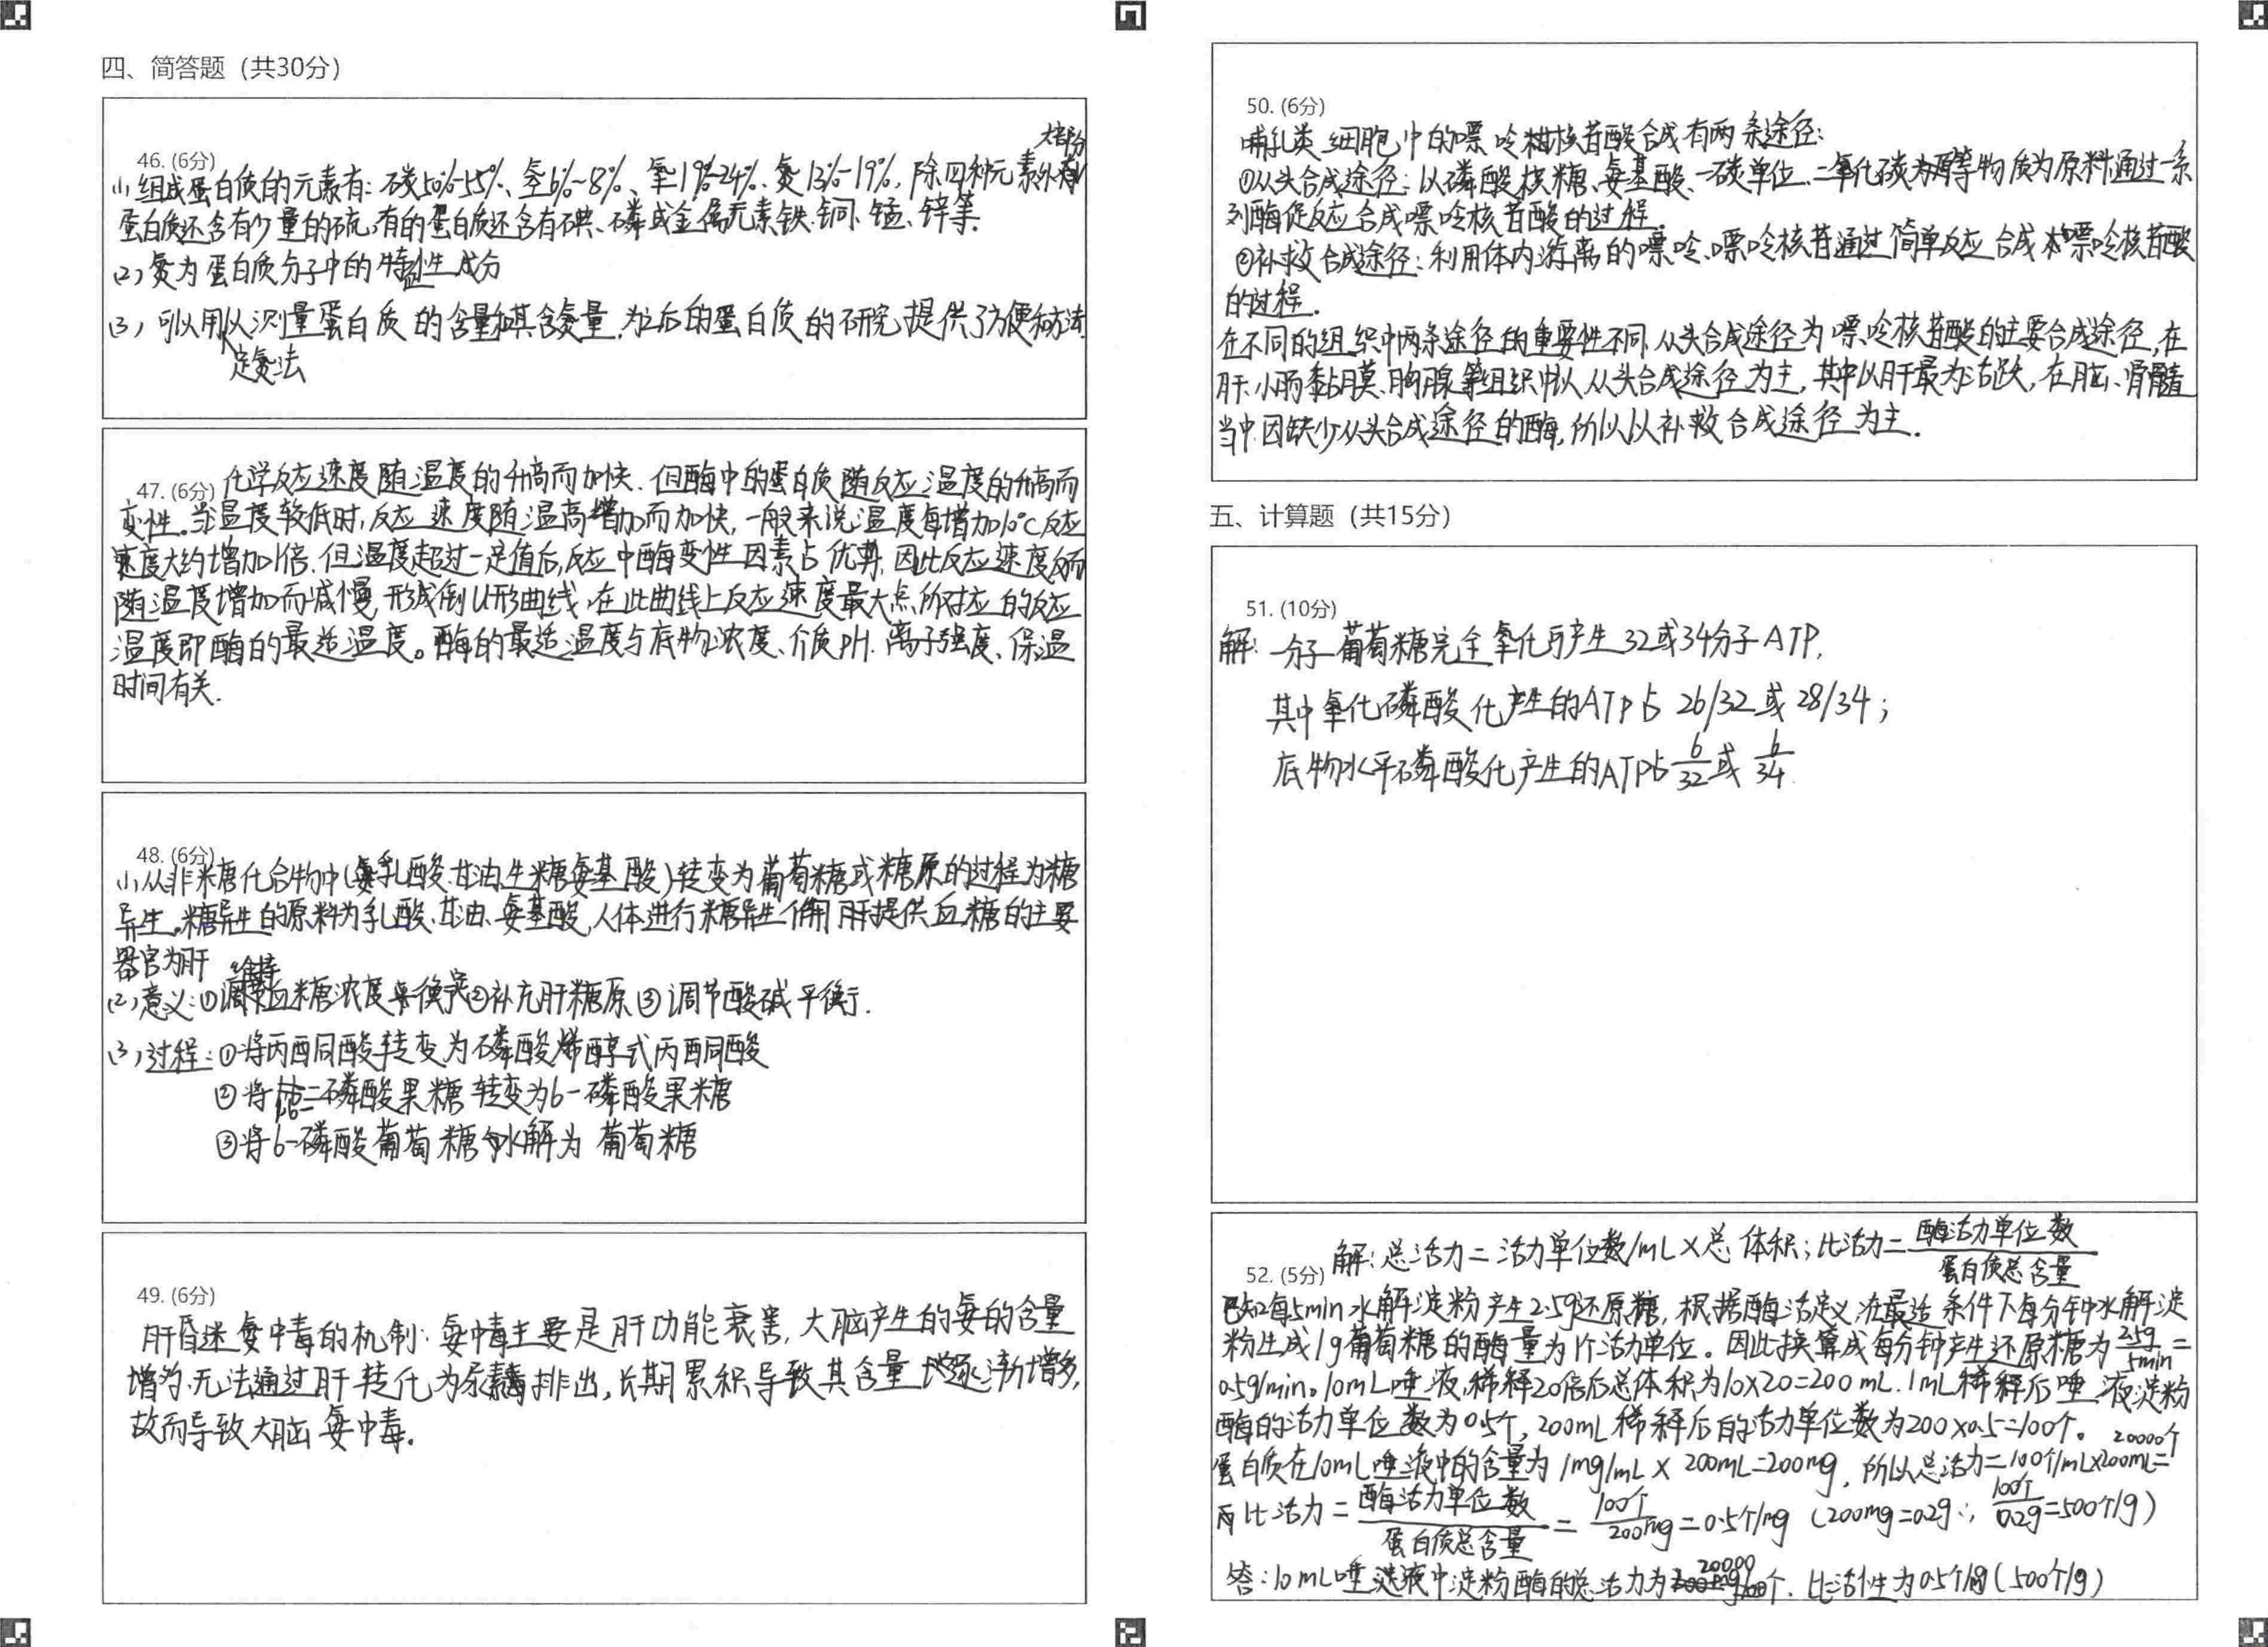 四、简答题（共30分）
大部分
46. (6分)
(1) 组成蛋白质的元素有：碳50%-55%、氢6%~8%、氧19%-24%、氮13%-19%，除四种元素外有
蛋白质还含有少量的硫，有的蛋白质还含有碘、磷或金属元素铁、铜、锰、锌等。
(2) 氮为蛋白质分子中的特征性成分
(3) 可以用以测量蛋白质的含量和其含氮量，为之后的蛋白质的研究提供了方便和方法
定氮法
47. (6分) 化学反应速度随温度的升高而加快．但酶中的蛋白质随反应温度的升高而
变性。当温度较低时，反应速度随温高增加而加快，一般来说温度每增加10℃反应
速度大约增加1倍．但温度超过一定值后，反应中酶变性因素占优势，因此反应速度反而
随温度增加而减慢，形成倒U形曲线，在此曲线上反应速度最大点所对应的反应
温度即酶的最适温度。酶的最适温度与底物浓度、介质pH．离子强度、保温
时间有关．
48. (6分)
(1) 从非糖化合物中(乳酸．甘油．生糖氨基酸)转变为葡萄糖或糖原的过程为糖
异生。糖异生的原料为乳酸．甘油、氨基酸，人体进行糖异生作用肝提供血糖的主要
器官为肝
维持
(2) 意义：①血糖浓度衡定②补充肝糖原③调节酸碱平衡．
(3) 过程：①将丙酮酸转变为磷酸烯醇式丙酮酸
②将1,6-二磷酸果糖转变为6-磷酸果糖
③将6-磷酸葡萄糖水解为葡萄糖
49. (6分)
肝昏迷氨中毒的机制：氨中毒主要是肝功能衰害，大脑产生的氨的含量
增多，无法通过肝转化为尿毒排出，长期累积导致其含量逐渐增多，
故而导致大脑氨中毒．
50. (6分)
哺乳类细胞中的嘌呤核苷酸合成有两条途径：
①从头合成途径：以磷酸核糖、氨基酸、一碳单位、二氧化碳等物质为原料通过一系
列酶促反应合成嘌呤核苷酸的过程．
②补救合成途径：利用体内游离的嘌呤、嘌呤核苷通过简单反应合成嘌呤核苷酸
的过程．
在不同的组织中两条途径的重要性不同，从头合成途径为嘌呤核苷酸的主要合成途径，在
肝、小肠黏膜、胸腺等组织中以从头合成途径为主，其中以肝最为活跃，在脑、骨髓
当中因缺少从头合成途径的酶，所以以补救合成途径为主．
五、计算题（共15分）
51. (10分)
解：一分子葡萄糖完全氧化可产生32或34分子ATP，
其中氧化磷酸化产生的ATP占26/32或28/34；
底物水平磷酸化产生的ATP占6/32或6/34
52. (5分) 解：总活力=活力单位数/mL×总体积；比活力=酶活力单位数/蛋白质总含量
已知每5min水解淀粉产生2.5g还原糖，根据酶活定义，在最适条件下每分钟水解淀
粉生成1g葡萄糖的酶量为1个活力单位。因此换算成每分钟产生还原糖为2.5g/5min=
0.5g/min。10mL唾液，稀释20倍后总体积为10×20=200mL．1mL稀释后唾液淀粉
酶的活力单位数为0.5个，200mL稀释后的活力单位数为200×0.5=100个。
蛋白质在10mL唾液中的含量为1mg/mL×200mL=200mg，所以总活力=100个/mL×200mL=20000个
而比活力=酶活力单位数/蛋白质总含量=100个/200mg=0.5个/mg (200mg=0.2g∴100个/0.2g=500个/g)
答：10mL唾液中淀粉酶的总活力为20000个．比活性为0.5个/mg(500个/g)